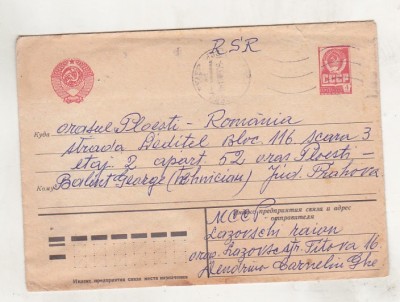 RSR
СССР
Куда orasul Ploesti - România
strada Seditel Bloc. 116 scara 3
etaj 2 apart 52 oras Ploesti
Кому Balint George (tehnician) Jud. Prahova
Индекс предприятия связи и адрес
отправителя
MCCP
Lazovschi raion
oras. Lazovsc str. Titova 16
Corneliu Ghe
Индекс предприятия связи места назначения